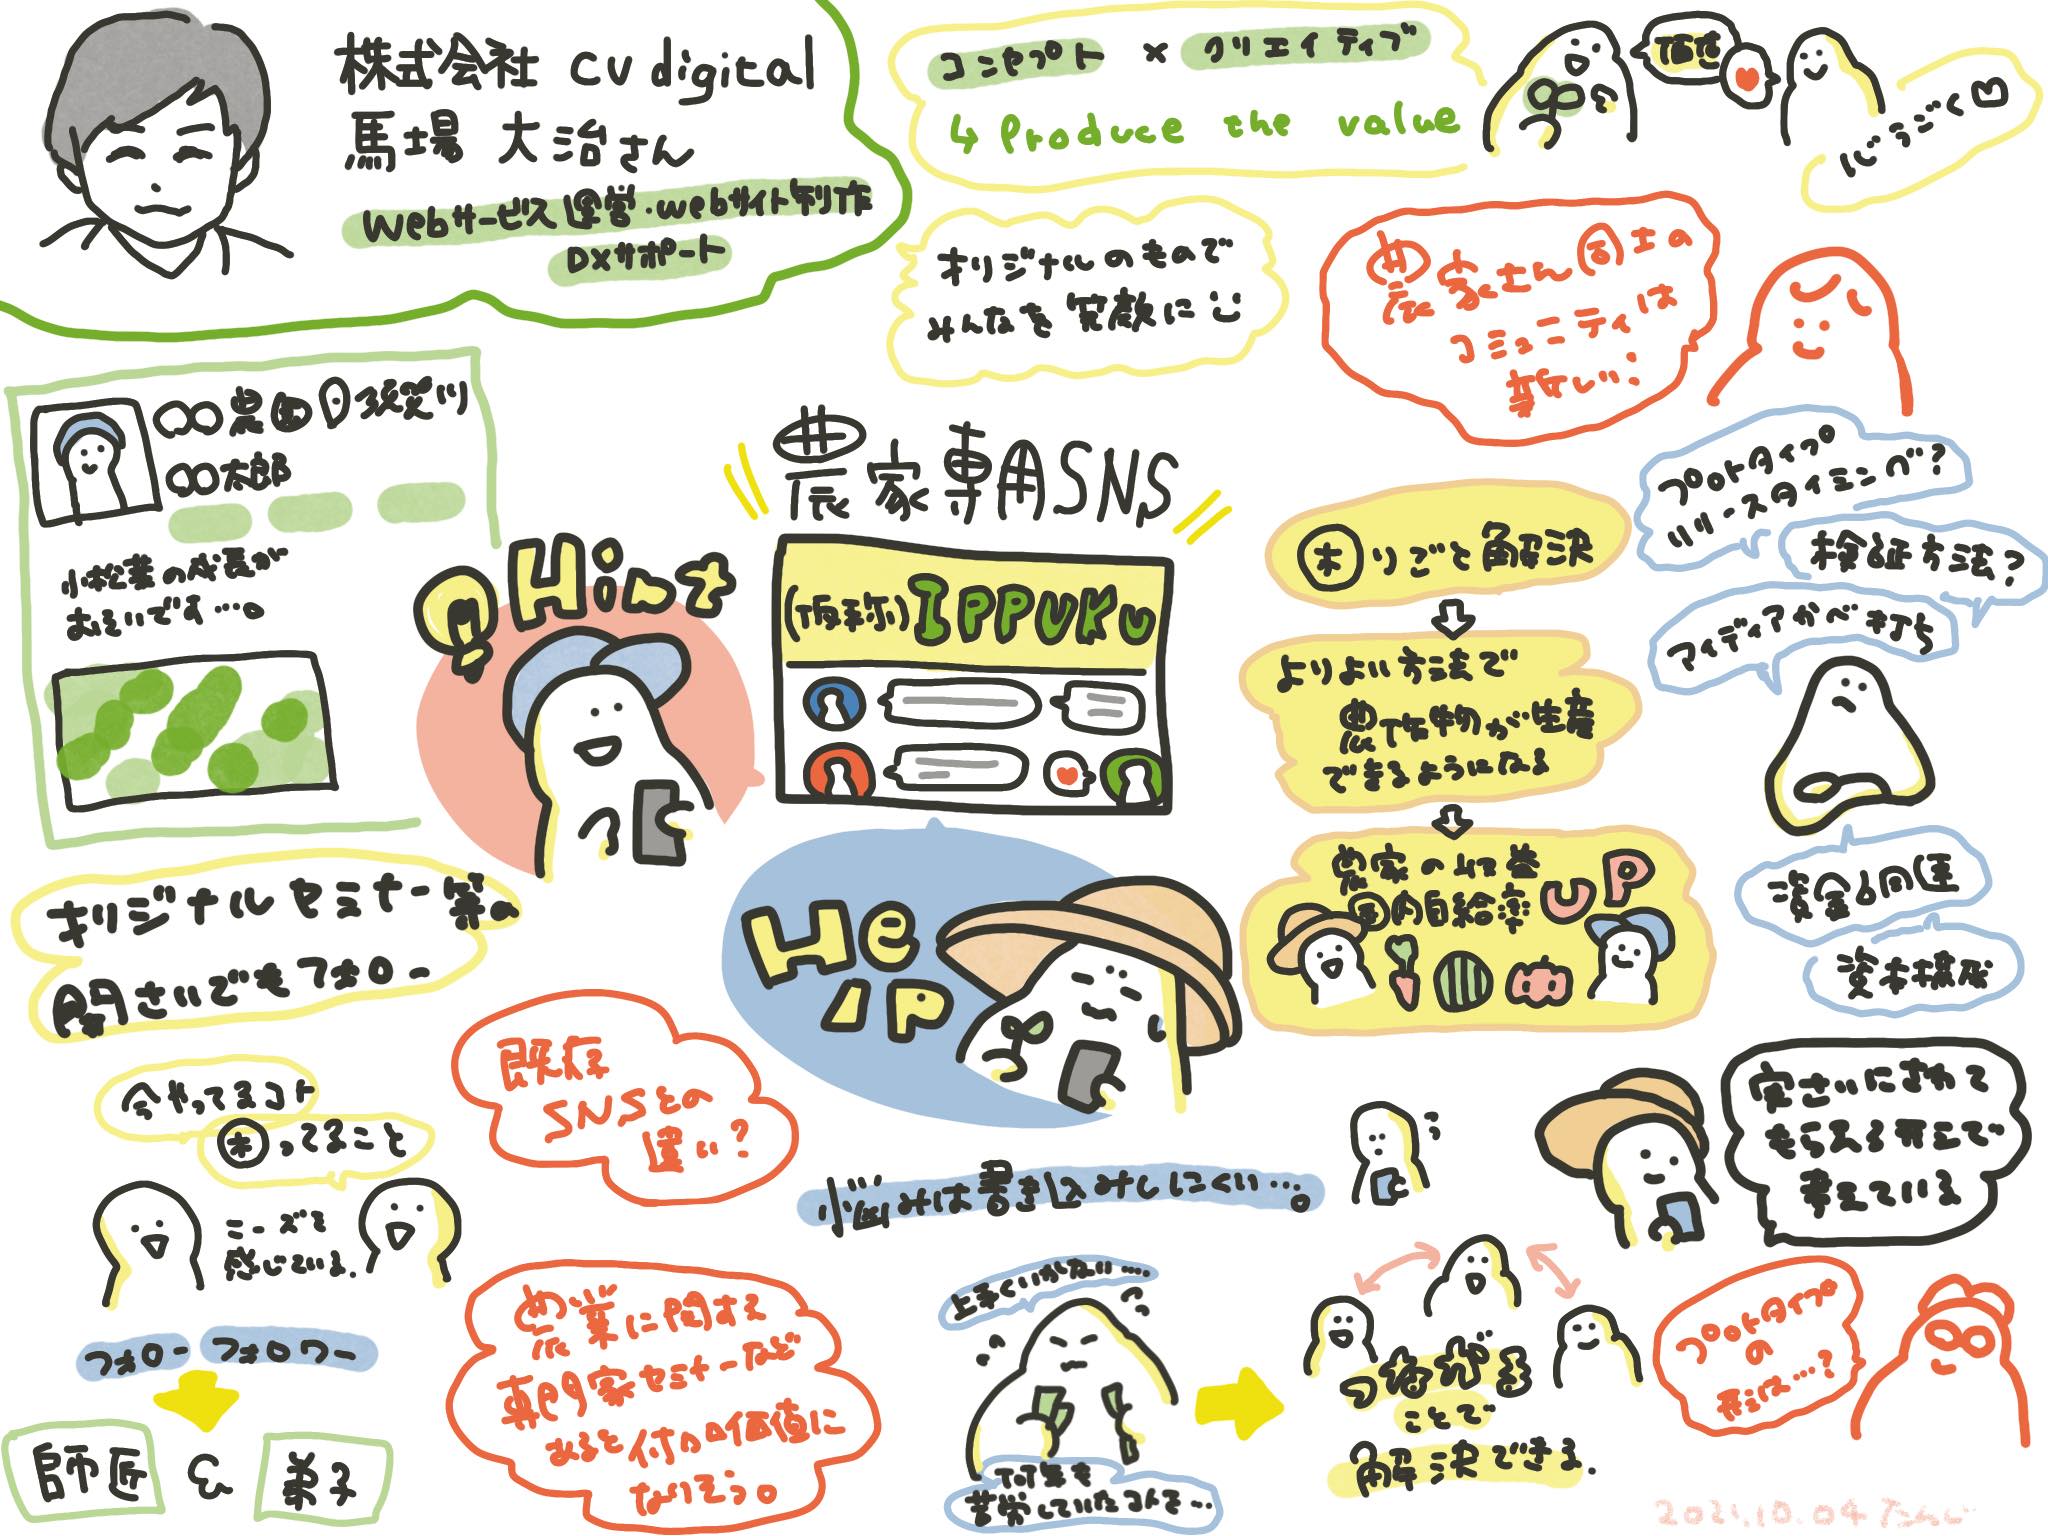 株式会社 CV digital
馬場 大治さん
Webサービス運営・webサイト制作
DXサポート
コンセプト × クリエイティブ
↳ Produce the value
価値
オリジナルのもので
みんなを笑顔に
農家さん同士の
コミュニティは
新しい!
○○農園
○○太郎
小松菜の成長が
おそいです…。
Hint
農家専用SNS
(仮称) IPPUKU
Help
困りごと解決
よりよい方法で
農作物が生産
できるようになる
農家の収益
国内自給率 UP
プロトタイプ
リリースタイミング?
検証方法?
アイディアかべ打ち
資金調達
資本構成
オリジナルセミナー等の
開さいでもフォロー
今やってるコト
困ってること
ニーズを
感じている.
フォロー フォロワー
師匠 & 弟子
既存
SNSとの
違い?
農業に関する
専門家セミナーなど
あると付加価値に
なりそう。
悩みは書き込みしにくい…。
上手くいかない…
何年も
苦労していたみんな…
つながる
ことで
解決できる.
実さいにさわって
もらえる形まで
考えている
プロトタイプ
の
形は…?
2021.10.04